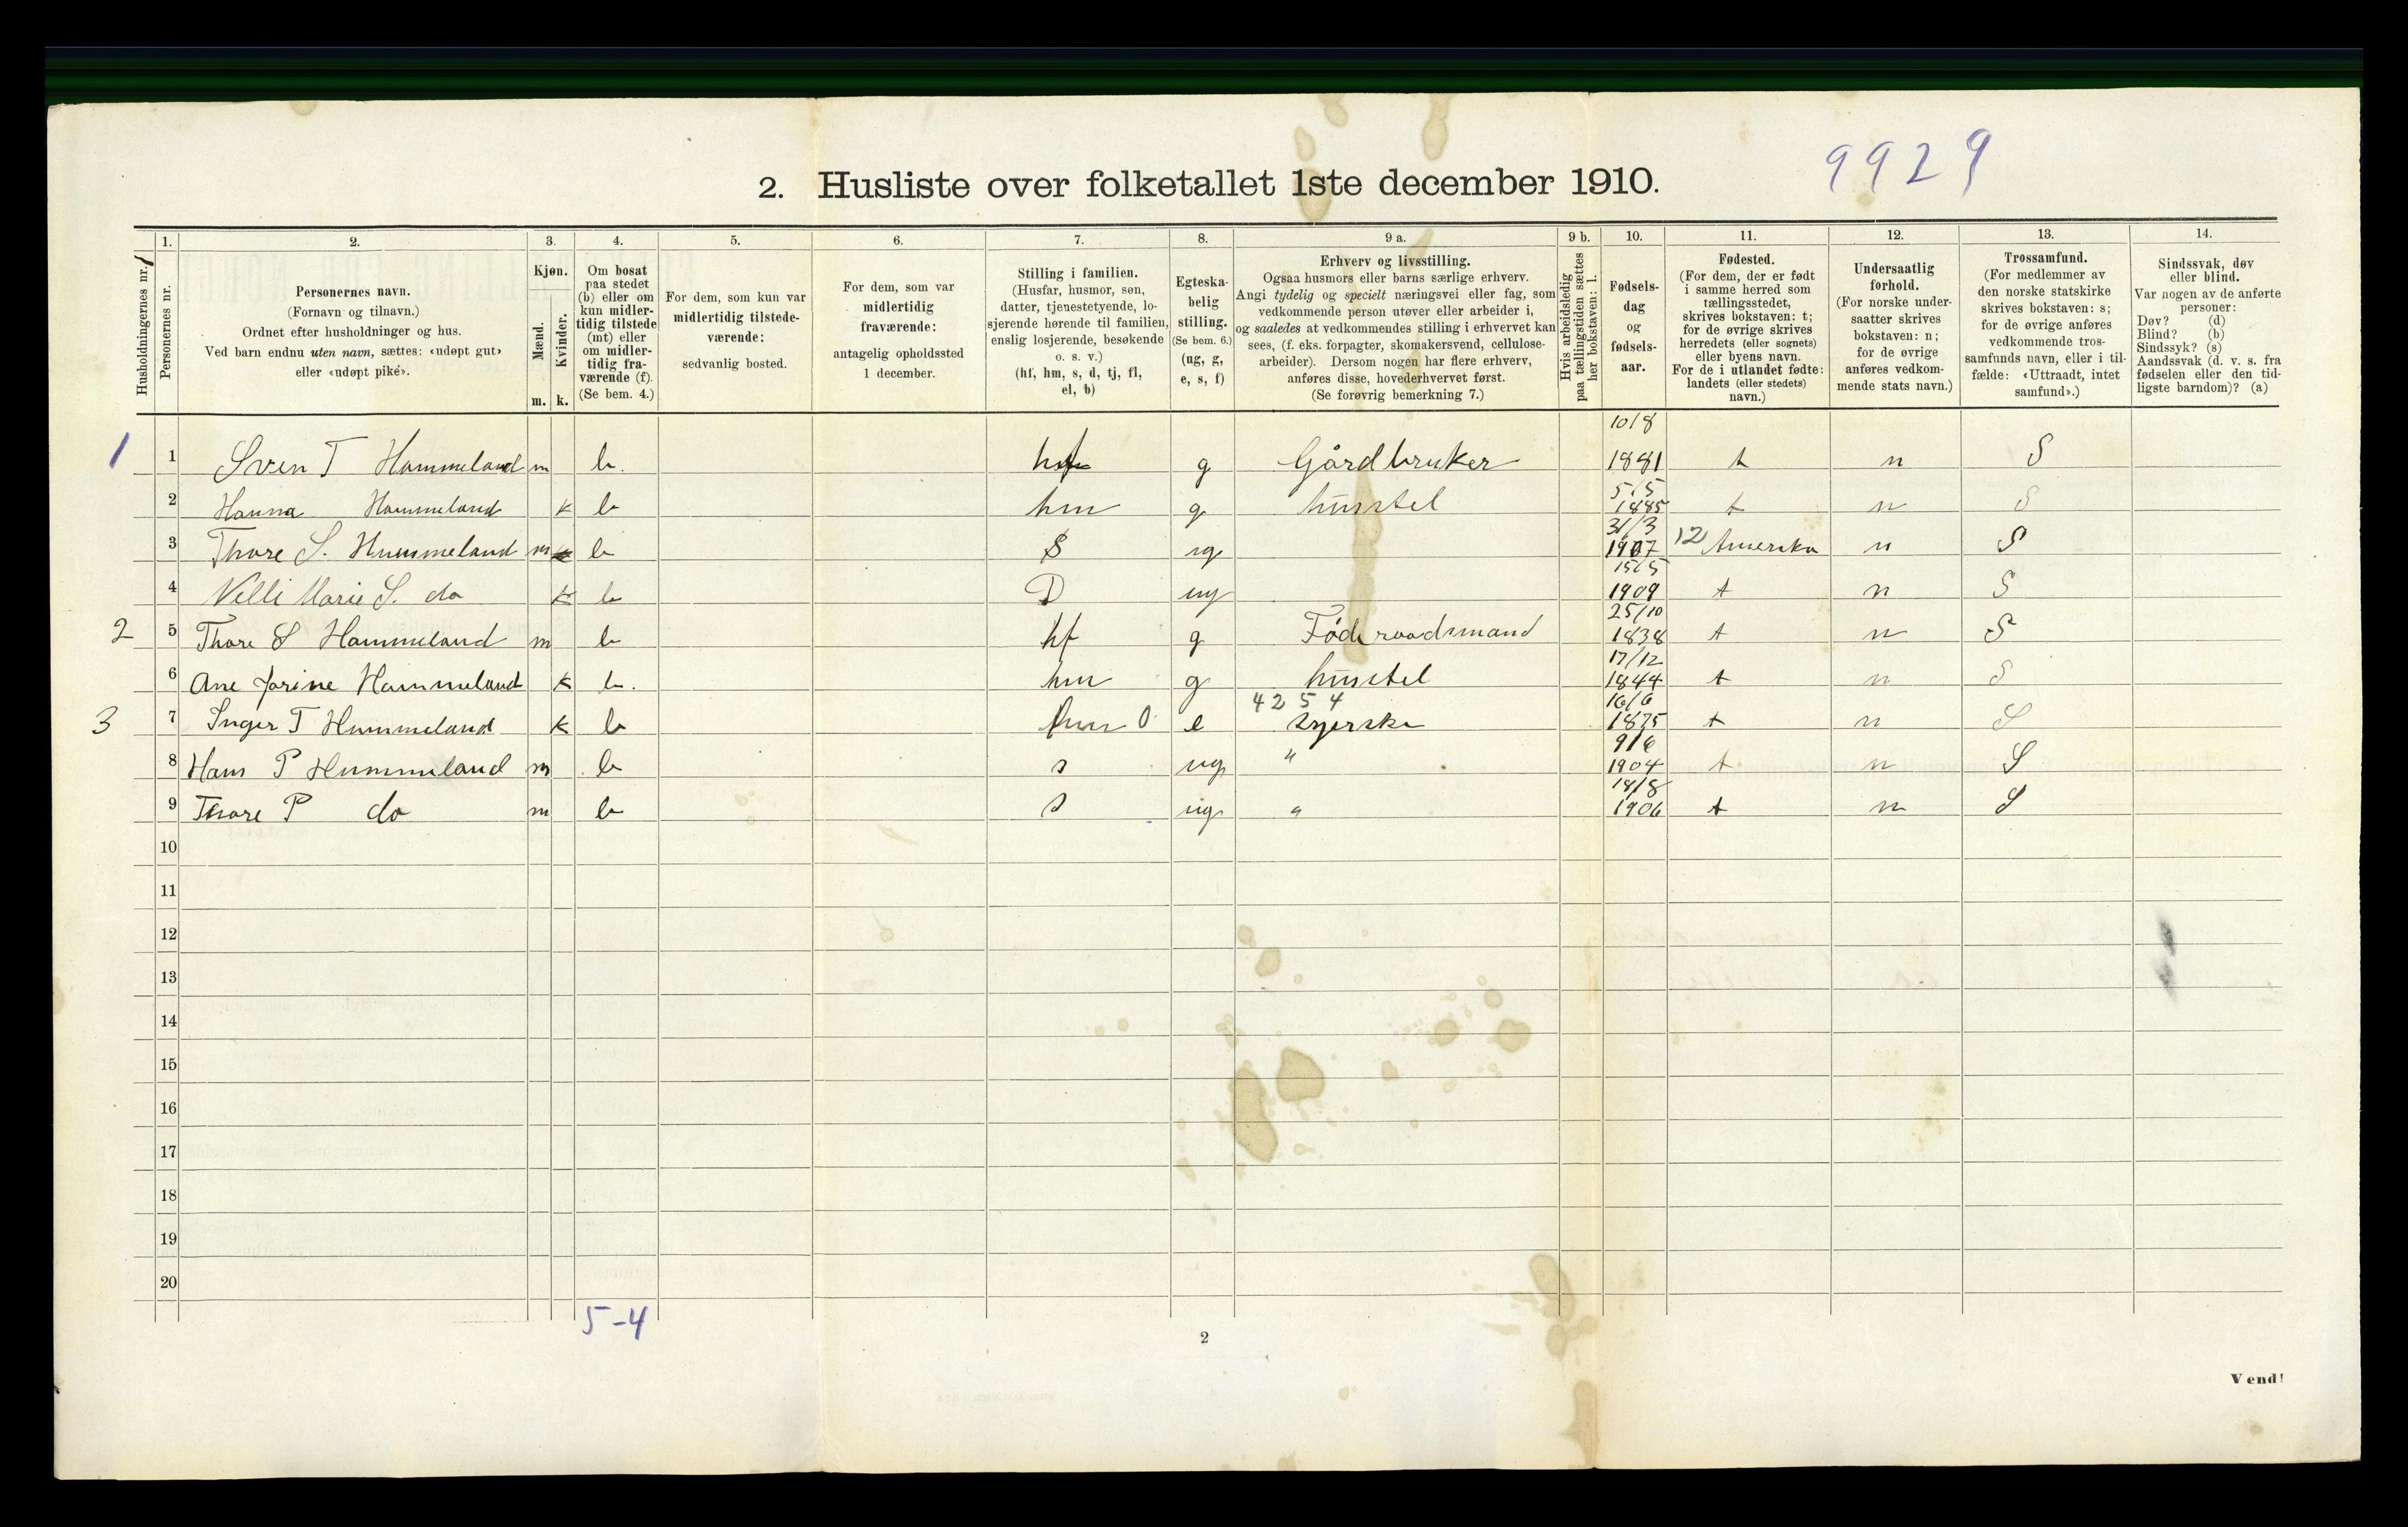 9929
2. Husliste over folketallet 1ste december 1910.
Husholdningernes nr.
1. Personernes nr.
2. Personernes navn.
(Fornavn og tilnavn.)
Ordnet efter husholdninger og hus.
Ved barn endnu uten navn, sættes: «udøpt gut»
eller «udøpt pike».
3. Kjøn.
Mænd. Kvinder.
m. k.
4. Om bosat
paa stedet
(b) eller om
kun midler-
tidig tilstede
(mt) eller
om midler-
tidig fra-
værende (f).
(Se bem. 4.)
5. For dem, som kun var
midlertidig tilstede-
værende:
sedvanlig bosted.
6. For dem, som var
midlertidig
fraværende:
antagelig opholdssted
1 december.
7. Stilling i familien.
(Husfar, husmor, søn,
datter, tjenestetyende, lo-
sjerende hørende til familien,
enslig losjerende, besøkende
o. s. v.)
(hf, hm, s, d, tj, fl,
el, b)
8. Egteska-
belig
stilling.
(Se bem. 6.)
(ug, g,
e, s, f)
9 a. Erhverv og livsstilling.
Ogsaa husmors eller barns særlige erhverv.
Angi tydelig og specielt næringsvei eller fag, som
vedkommende person utøver eller arbeider i,
og saaledes at vedkommendes stilling i erhvervet kan
sees, (f. eks. forpagter, skomakersvend, cellulose-
arbeider). Dersom nogen har flere erhverv,
anføres disse, hovederhvervet først.
(Se forøvrig bemerkning 7.)
9 b. Hvis arbeidsledig
paa tællingstiden sættes
her bokstaven: l.
10. Fødsels-
dag
og
fødsels-
aar.
11. Fødested.
(For dem, der er født
i samme herred som
tællingsstedet,
skrives bokstaven: t;
for de øvrige skrives
herredets (eller sognets)
eller byens navn.
For de i utlandet fødte:
landets (eller stedets)
navn.)
12. Undersaatlig
forhold.
(For norske under-
saatter skrives
bokstaven: n;
for de øvrige
anføres vedkom-
mende stats navn.)
13. Trossamfund.
(For medlemmer av
den norske statskirke
skrives bokstaven: s;
for de øvrige anføres
vedkommende tros-
samfunds navn, eller i til-
fælde: «Uttraadt, intet
samfund».)
14. Sindssvak, døv
eller blind.
Var nogen av de anførte
personer:
Døv? (d)
Blind? (b)
Sindssyk? (s)
Aandssvak (d. v. s. fra
fødselen eller den tid-
ligste barndom)? (a)
1 1 Sven T Hammeland m b. hf g Gårdbruker 10/8 1881 t n S
2 Hanna Hammeland k b hm g husstel 5/5 1885 t n S
3 Thore S. Hammeland m b S ug 31/3 1907 12 Amerika n S
4 Nelli Marie S. do k b D ug 15/5 1909 t n S
2 5 Thore S Hammeland m b hf g Föderaadsmand 25/10 1838 t n S
6 Ane Jorine Hammeland k b. hm g husstel 17/12 1844 t n S
4254
3 7 Inger T Hammeland k b hm 0 e syerske 16/6 1875 t n S
8 Hans P Hammeland m b s ug " 9/6 1904 t n S
9 Thore P do m b s ug " 18/8 1906 t n S
10
11
12
13
14
15
16
17
18
19
20
5-4
2
Vend!